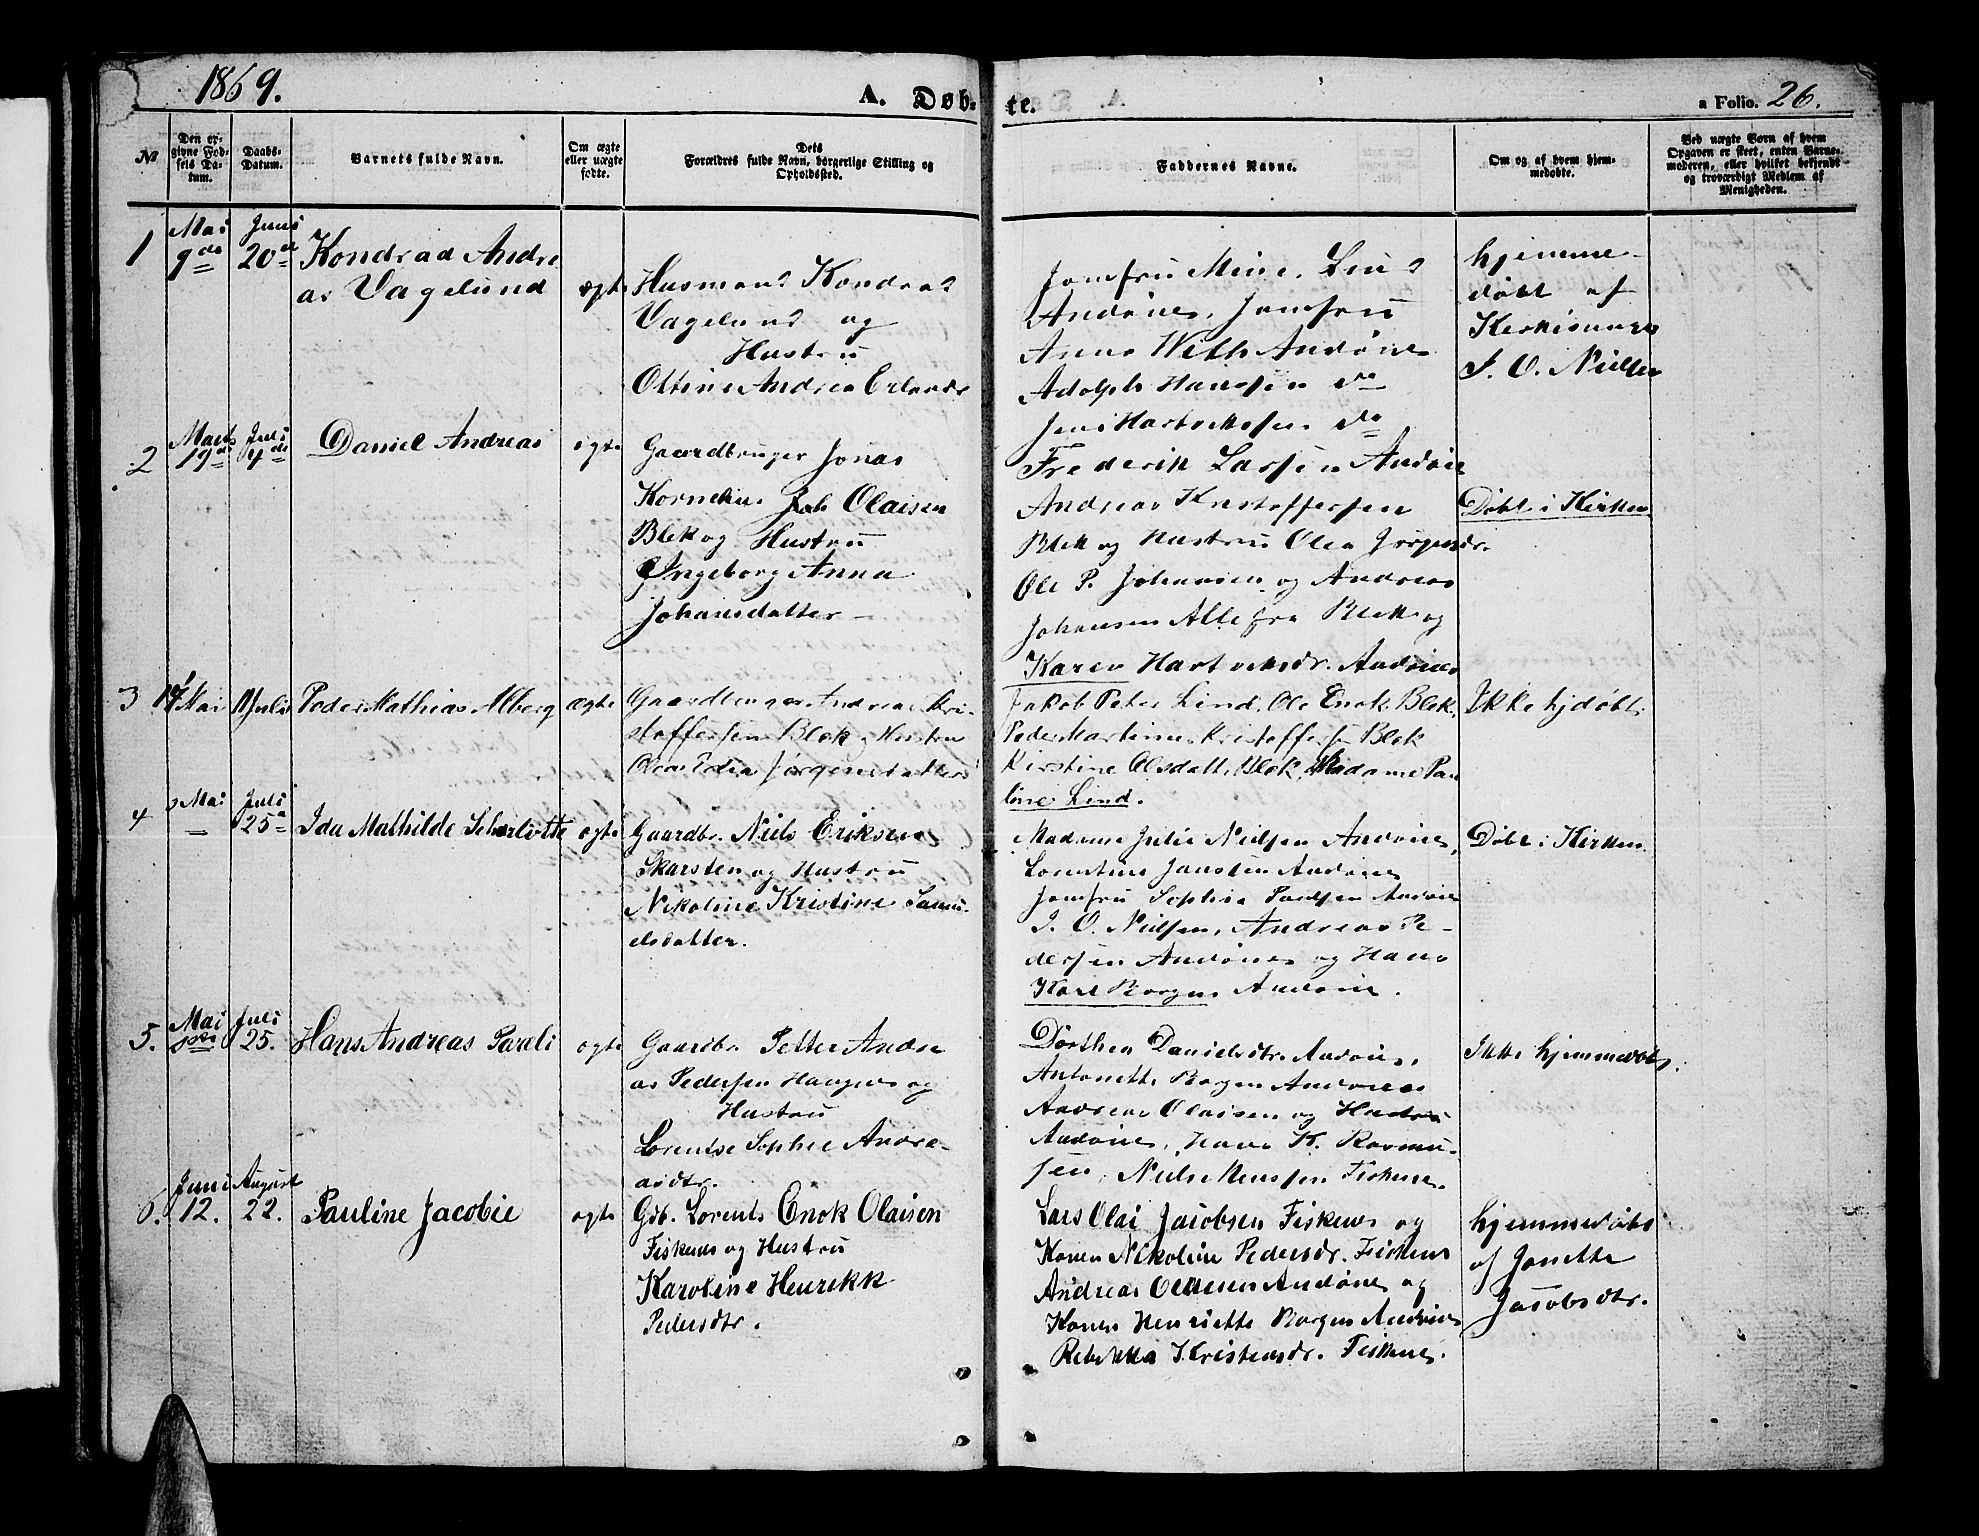 1869.
A. Døb-
te.
a Folio. 26.
№
Den op-
givne Fød-
sels Da-
tum.
Daabs-
Datum.
Barnets fulde Navn.
Om ægte
eller uægte
fødte.
Dets
Forældres fulde Navn, borgerlige Stilling og
Opholdssted.
Faddernes Navne.
Om og af hvem hjem-
medøbte.
Ved uægte Børn af hvem
Opgaven er skeet, enten Barne-
moderen, eller hvilket bekjendt
og troværdigt Medlem af
Menigheden.
1
Mai
9de
Juni
20de
Kondrad Andre
as Vagelund
ægte
Husmand Kondrad
Vagelund og
Hustru
Ottine Andrea Erlandsdr
Jomfru Mine Lind
Andønes, Jomfru
Anna With Andønes
Adolph Hanssen do
Jens Hartviksen do
Frederik Larssen Andønes
hjemme-
døbt af
Kirkesanger
J. O. Nielsen
2
Marts
19de
Juli
4de
Daniel Andreas
ægte
Gaardbruger Jonas
Kornelius Olaisen
Blek og Hustru
Ingeborg Anna
Johansdatter
Andreas Kristoffersen
Blek og Hustru Olea Jørgensdr.
Ole P. Johansen og Andreas
Johansen Alle fra Blek og
Karen Hartviksdr. Andønes
Døbt i Kirken
3
Mai
11 Juli
Peder Mathias Alberg
ægte
Gaardbruger Andreas Kri-
stoffersen Blek, Hustru
Olea Edia Jørgensdatter
Jakob Peter Lind, Ole Enok Blek,
Peder Martinus Kristoffersen Blek
Kirstine Olsdatt. Blek, Madame Pau
line Lind.
Ikke hjdøbt.
4
Mai
Juli
25de
Ida Mathilde Scharlotte
ægte
Gaardbr. Niels Eriksen
Skarsten og Hustru
Nikoline Kristine Samu-
elsdatter.
Madame Julie Nielsen Andønes,
Lorentine Jansten Andønes
Jomfru Sophie Paulsen Andønes
J. O. Nielsen, Andreas Pe-
dersen Andønes og Hans
Karl Borgen Andønes.
Døbt i Kirken
5.
Mai
Juli
25.
Hans Andreas Pareli
ægte
Gaardbr. Petter Andre
as Pedersen Haugnes og
Hustru
Lorentse Sophie Andre-
asdtr.
Dorthea Danielsdtr. Andønes,
Antonette Borgen Andønes
Andreas Olaisen og Hustru
Andønes, Hans K. Rasmu-
sen, Niels Monssen Fiskenes.
Ikke hjemmedøbt.
6.
Juni
12.
August
22.
Pauline Jacobie
ægte
Gdb. Lorents Enok Olaisen
Fiskenes og Hustru
Karoline Henrikk
Pedersdtr.
Lars Olai Jacobsen Fiskenes og
Konen Nikoline Pedersdr. Fiskenes
Andreas Olaisen Andønes og
Konen Henriette Borgen Andønes
Rebekka Kristensdr. Fiskenes.
hjemmedøbt
af Jonette
Jacobsdtr.